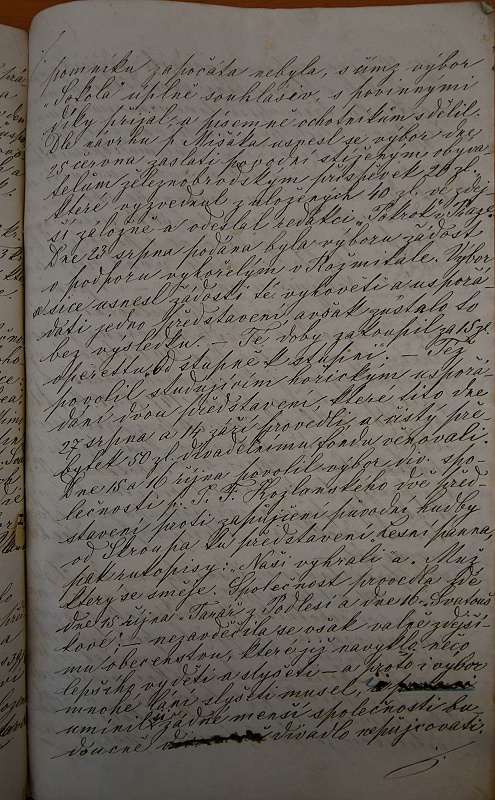 pomníku započata nebyla, s čímž výbor
„Sokola“ úplně souhlasiv, s povinnými
díky přijal, a písemně ochotníkům sdělil.
Dle návrhu p. Mišáka usnesl se výbor dne
25 června zaslati povodní stíženým obyva-
telům železnobrodským příspěvek 20 zl.
které vyzvednul z uložených 40 zl. ve zdej
ší záložně a odeslal redakci „Pokrok“ v Praze
Dne 23 srpna podána byla výboru žádost
o podporu vyhořelým v Rožmitále. Výbor
sice usnesl žádosti té vyhověti a uspořá-
dati jedno představení avšak zůstalo to
bez výsledku. – Té doby zakoupil za 15 zl.
operettu „Od stupně k stupni“. – Též
povolil studujícím hořickým uspořá-
dání dvou představení které tito dne
27 srpna a 14 září provedli, a čistý pře-
bytek 50 zl. divadelnímu fondu věnovali.
Dne 15 a 16 října povolil výbor div. spo-
lečnosti p. J. F. Kozlanského dvě před-
stavení proti zapůjčení původní hudby
od Škroupa ku představení Lesní panna,
pak rukopisy: „Naši vyhráli“ a „Muž,
který se směje. Společnost provedla zde
dne 15 října „Tatar z Podlesí a dne 16.
kové“; – nezavděčila se však valně zdejší-
mu obecenstvu, které již navyklo něco
lepšího viděti a slyšeti – a proto i výbor
mnohé lání slyšeti musel,
umínil si žádné menší společnosti bu-
doucně divadlo nepůjčovati.